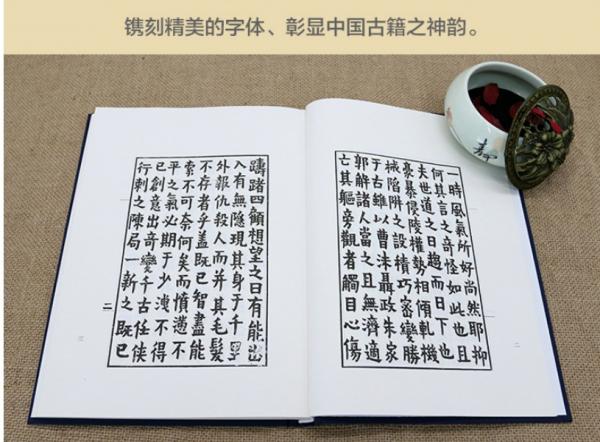 镌刻精美的字体、彰显中国古籍之神韵。
一時風氣所好尚然耶抑
何其言之奇怪如此也且
夫世道之日趨而日下也
豪暴侵陵權勢相傾軋機
械陷阱之設積巧密變勝
于古雖以曹沫聶政朱家
郭解諸人當之且無濟適
亡其軀旁觀者觸目心傷
躊躇四顧想望之日有能出
入有無隱現其身于千里
外報仇殺人而并其毛髮
不存者乎蓋既已智盡能
索不可奈何矣而憤懣不
平之氣必期于少洩不得
已創意出奇變千古任俠
行刺之陳局一新之既已
二